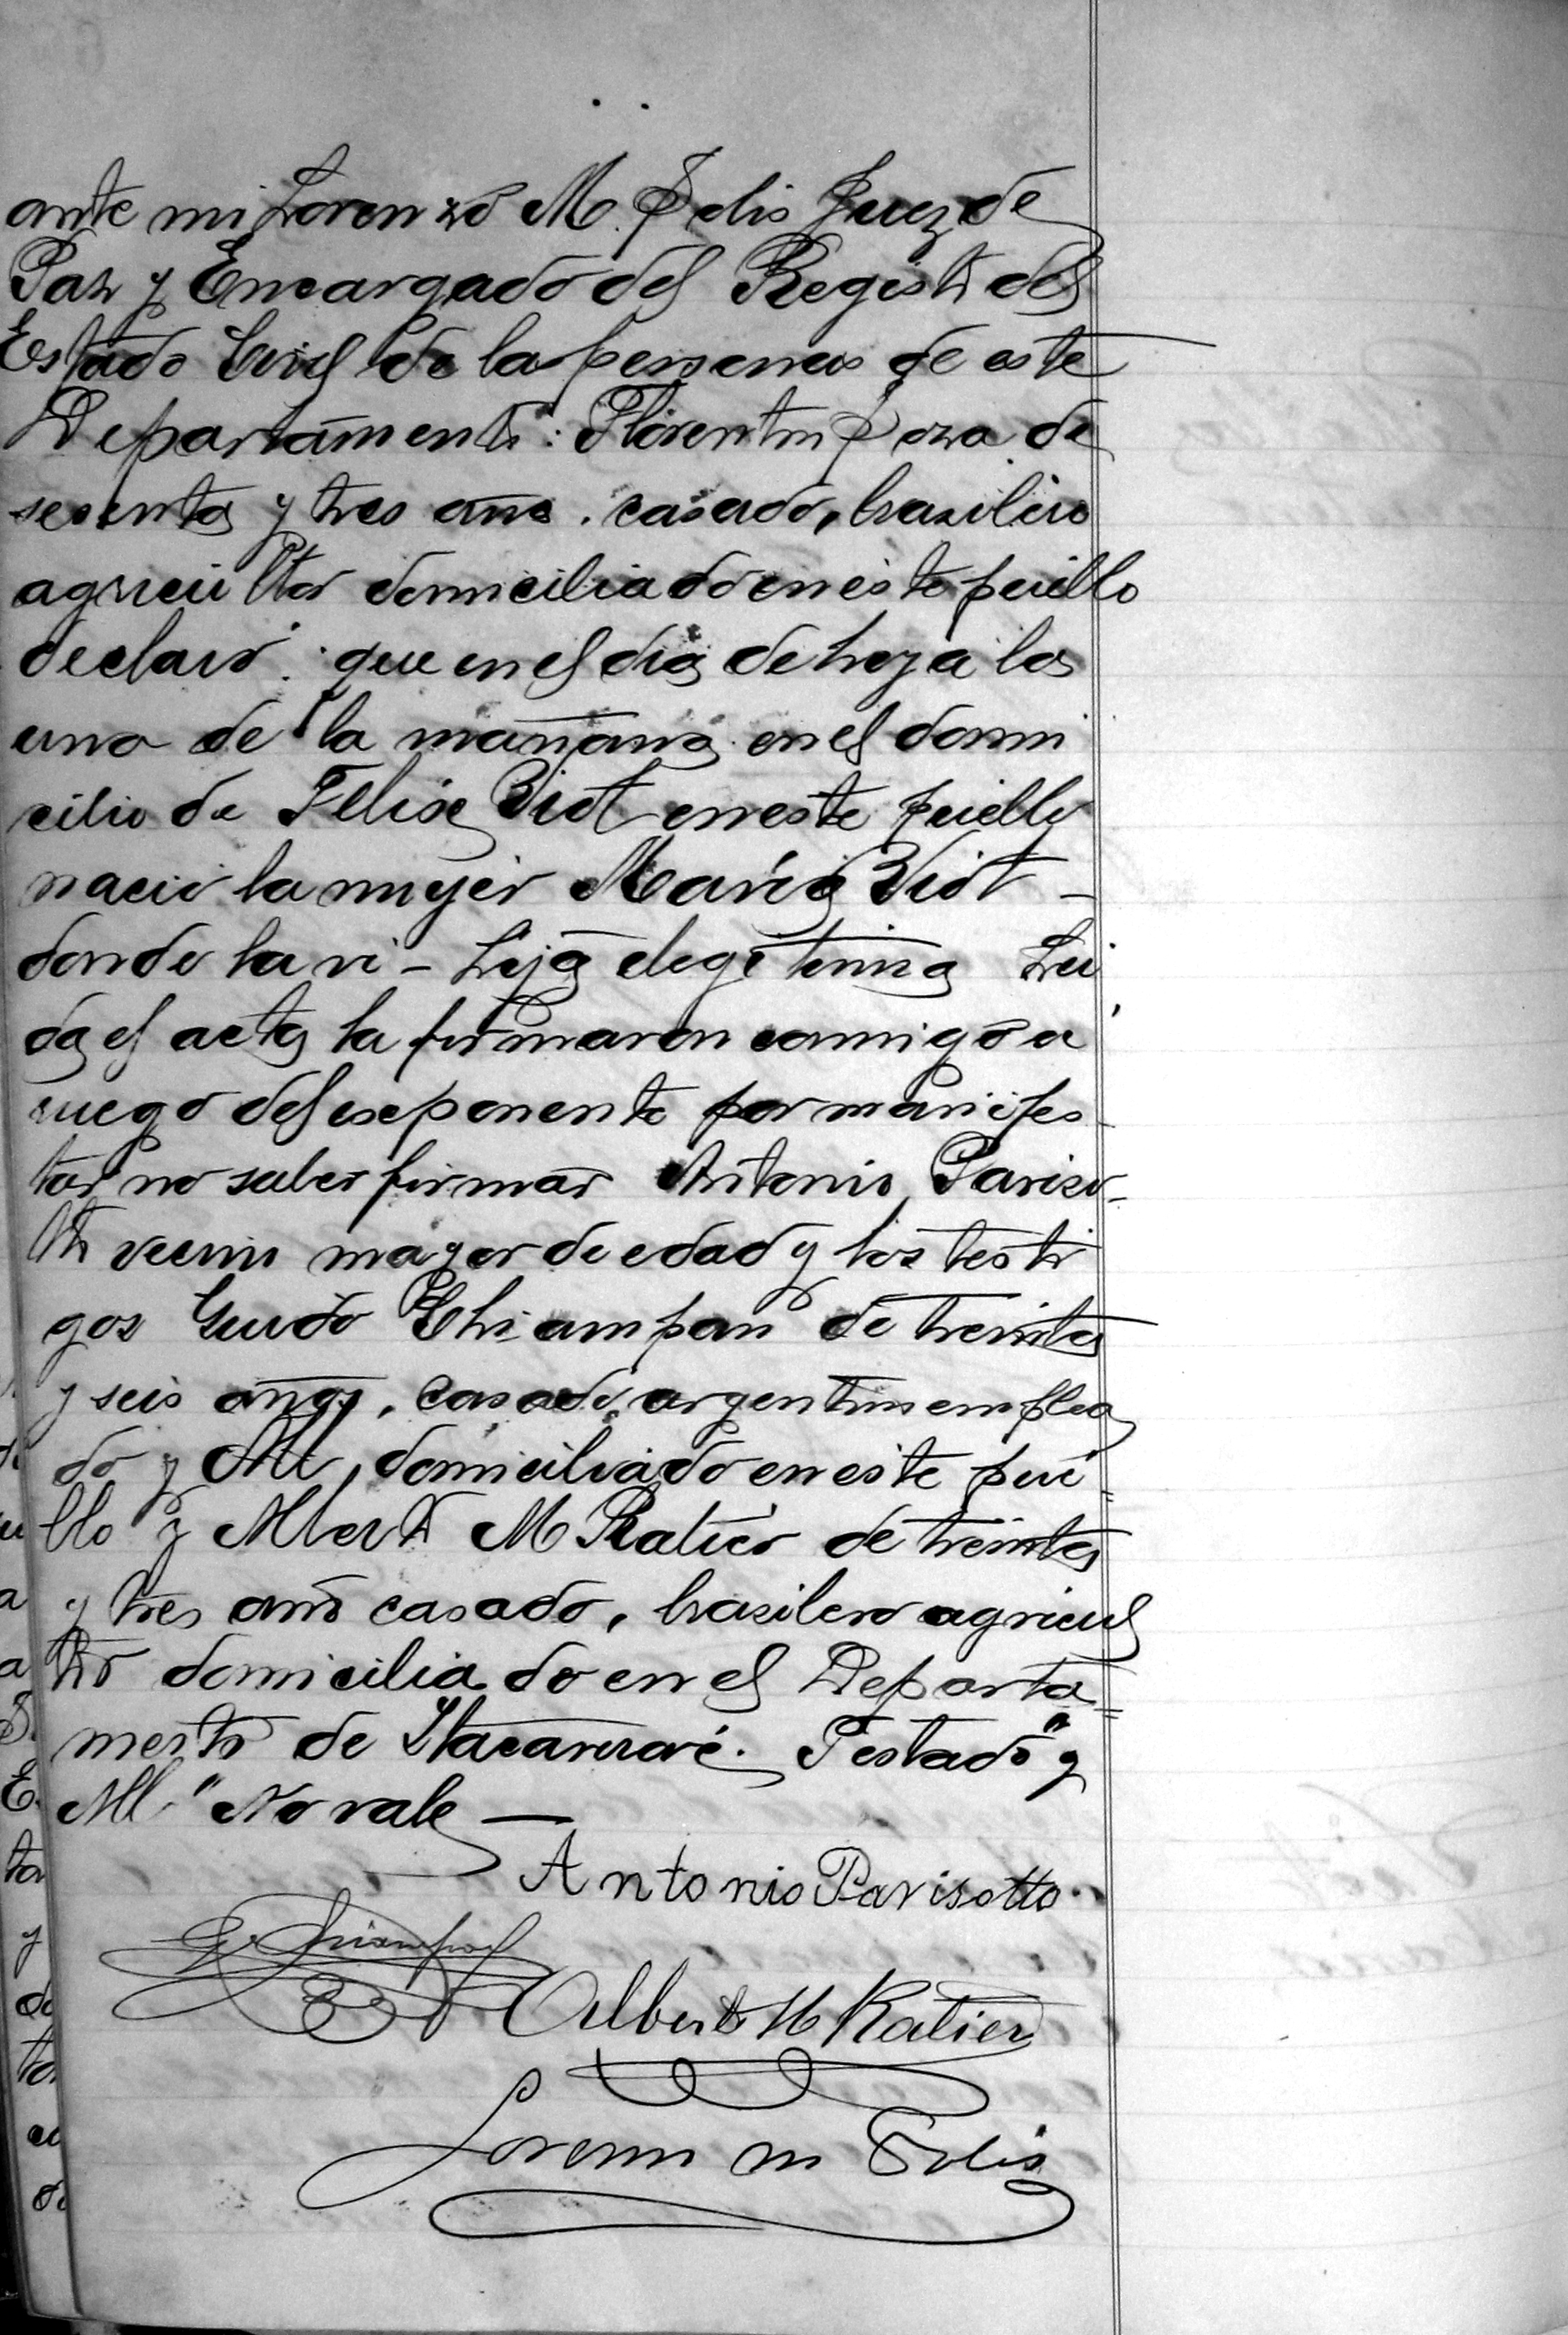 ante mi Lorenzo M. Solis Juez de
Paz y Encargado del Registro del
Estado Civil de las personas de este
Departamento: Florentin Soza de
sesenta y tres años. casado, brasilero
agricultor domiciliado en este pueblo
declaró: que en el dia de hoy a las
una de la mañana en el domi
cilio de Felise Viot en este pueblo
nació la mujer Maria Viot —
donde la vi — hija elegitima Lei
da el acta la firmaron conmigo a
ruego del exponente por manifes-
tar no saber firmar Antonio Pariso-
tto vecino mayor de edad y los testi
gos Guido Chiampan de treinta
y seis años, casado, argentino emplea
do y Al, domiciliado en este pue=
blo y Alberto M Ratier de treinta
y tres años casado, brasilero agricul
tor domiciliado en el Departa=
mento de Itacaruaré. Testado "y
Al" No vale —
Antonio Parisotto
G. Chiampan
Alberto M Ratier
Lorenzo M Solis